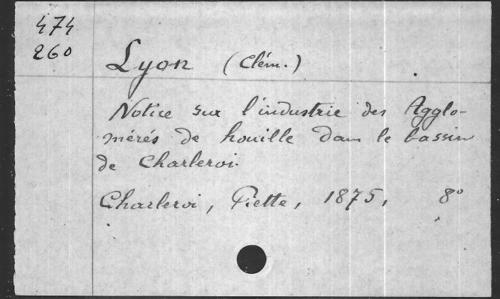 474
260
Lyon (Clém.)
Notice sur l'industrie des Agglo-
mérés de houille dans le bassin
de Charleroi.
Charleroi, Piette, 1875, 8°